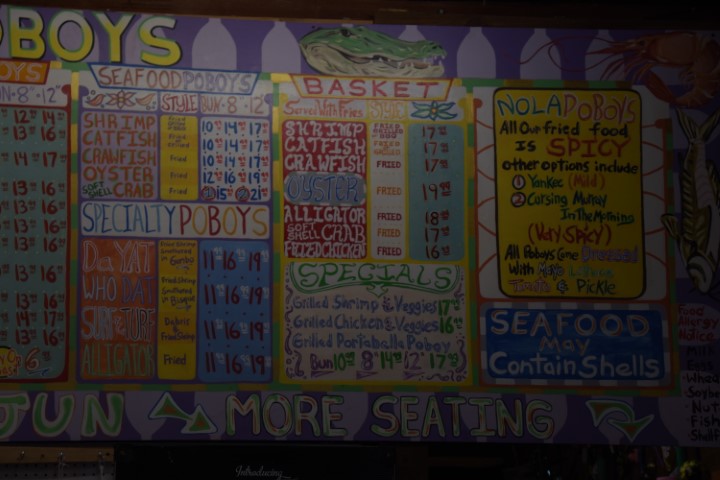 OBOYS
OYS
UN·8"·12"
12 14
13 16
14 17
13 16
13 16
13 16
13 16
13 16
14 16
13 16
6
SEAFOOD POBOYS
STYLE BUN·8"·12"
SHRIMP 10 14 17
CATFISH 10 14 17
CRAWFISH Fried 10 14 17
OYSTER Fried 12 16 19
SOFT SHELL CRAB Fried 15 21
SPECIALTY POBOYS
Da YAT Fried Shrimp Smothered in Gumbo 11·16·19
WHO DAT Fried Shrimp 11·16·19
SURF & TURF Debris & Fried Shrimp 11·16·19
ALLIGATOR Fried 11·16·19
BASKET
Served With Fries STYLE
SHRIMP 17
CATFISH 17
CRAWFISH FRIED 17
OYSTER FRIED 19
ALLIGATOR FRIED 18
SOFT SHELL CRAB FRIED 17
FRIED CHICKEN FRIED 16
SPECIALS
Grilled Shrimp & Veggies 17
Grilled Chicken & Veggies 16
Grilled Portabella Poboy
Bun 10 8" 14 12" 17
NOLA POBOYS
All Our fried food
IS SPICY
other options include
1 Yankee (Mild)
2 Cursing Munay
In The Morning
(Very SPICY)
All Poboys Come Dressed
With Mayo Lettuce
Tomato & Pickle
SEAFOOD
May
Contain Shells
Food
Allergy
Notice
Milk
Eggs
Wheat
Soybe
Nut
Fish
Shell
JUN MORE SEATING
Introducing